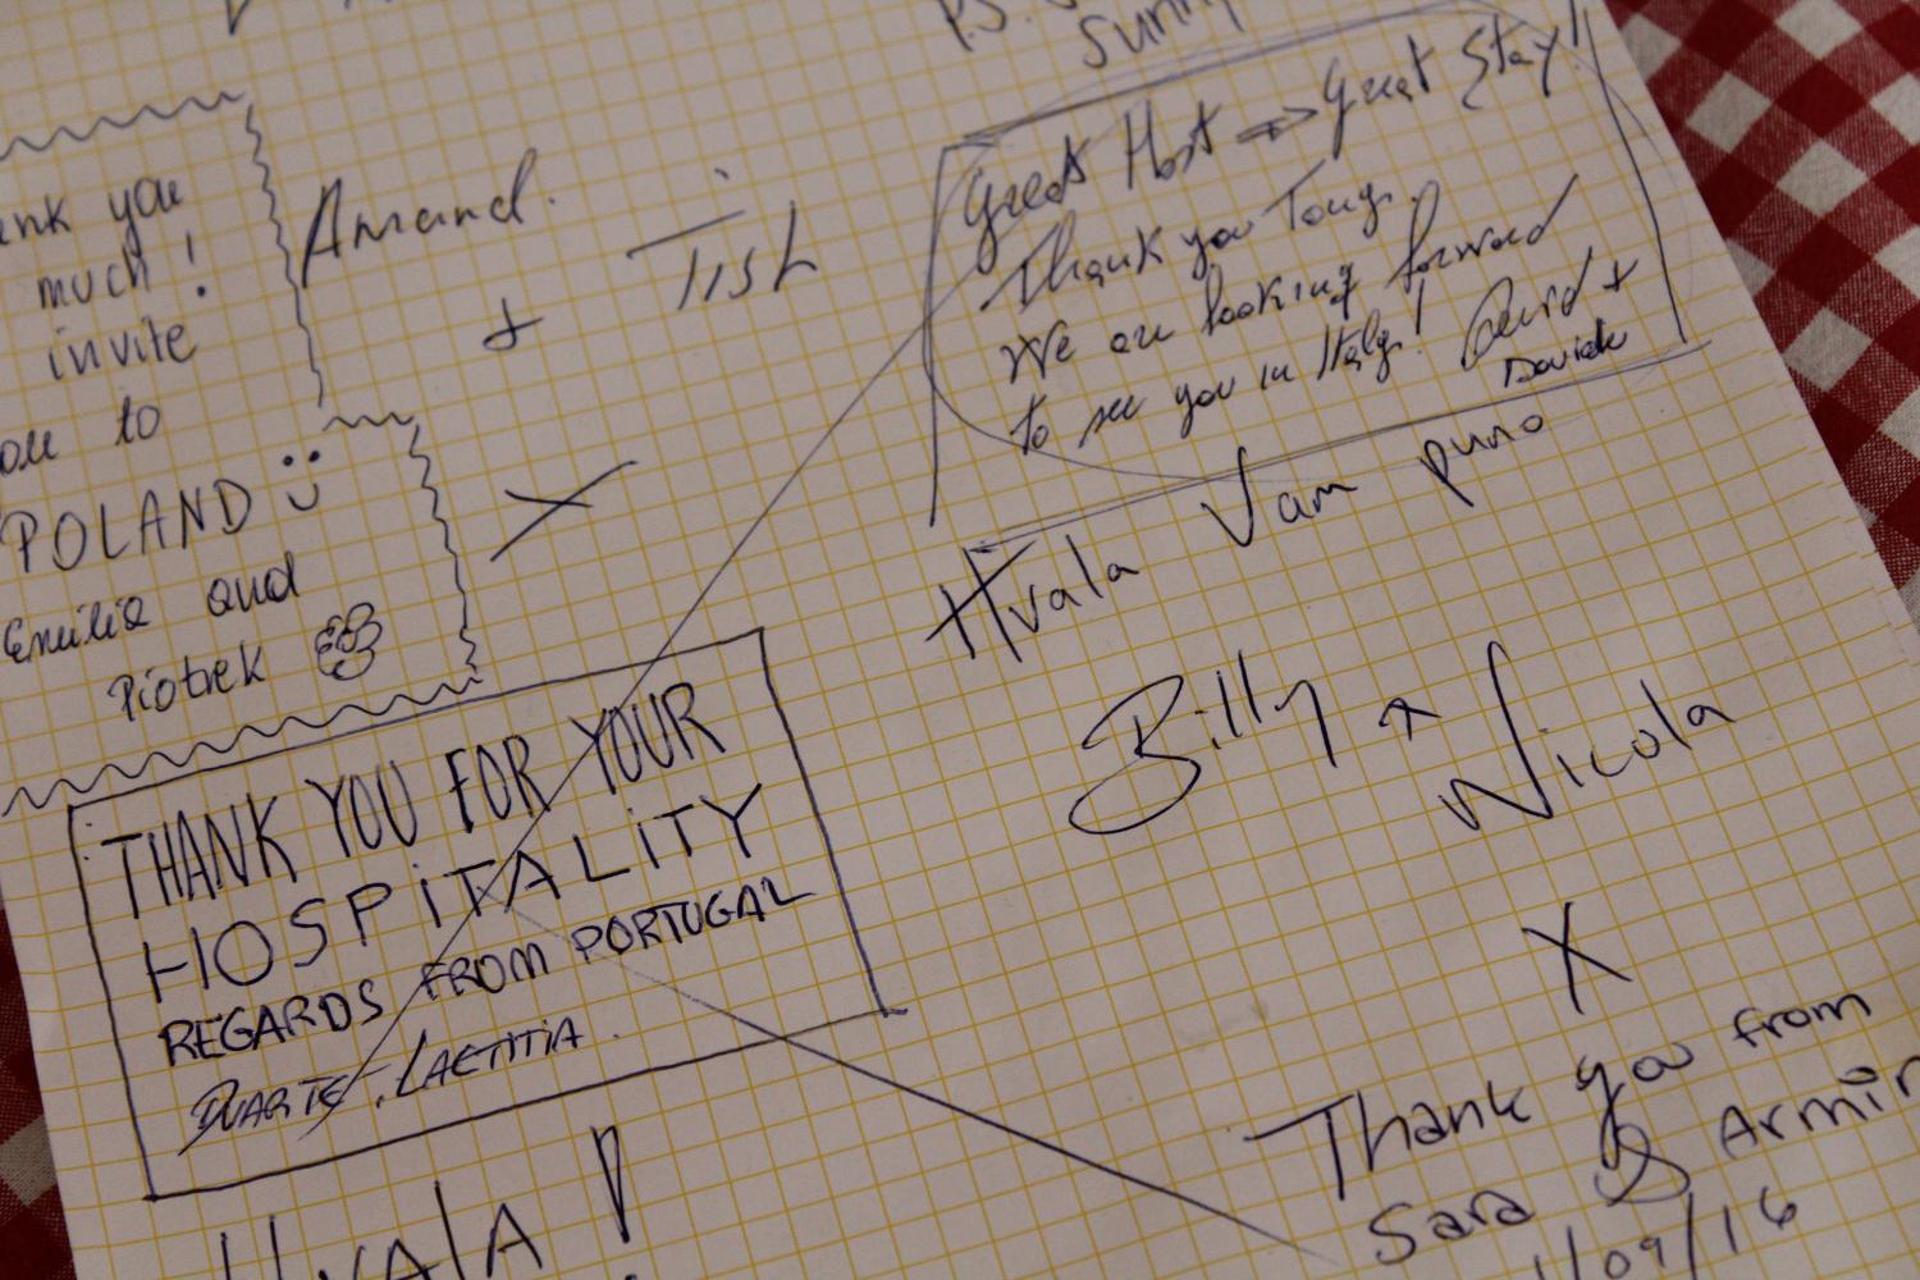 P.S.
Sunny
you
much!
invite
to
POLAND
Emilia and
Piotrek
Amand.
+
Tish
X
Great Host => Great Stay!
Thank you Tony.
We are looking forward
to see you in Italy! David +
Davide
Hvala Vam puno
Billy +
Nicola
X
THANK YOU FOR YOUR
HOSPiTALiTY
REGARDS FROM PORTUGAL
DUARTE, LAETITIA.
HvAlA!
Thank you from
Sara & Armin
/09/16